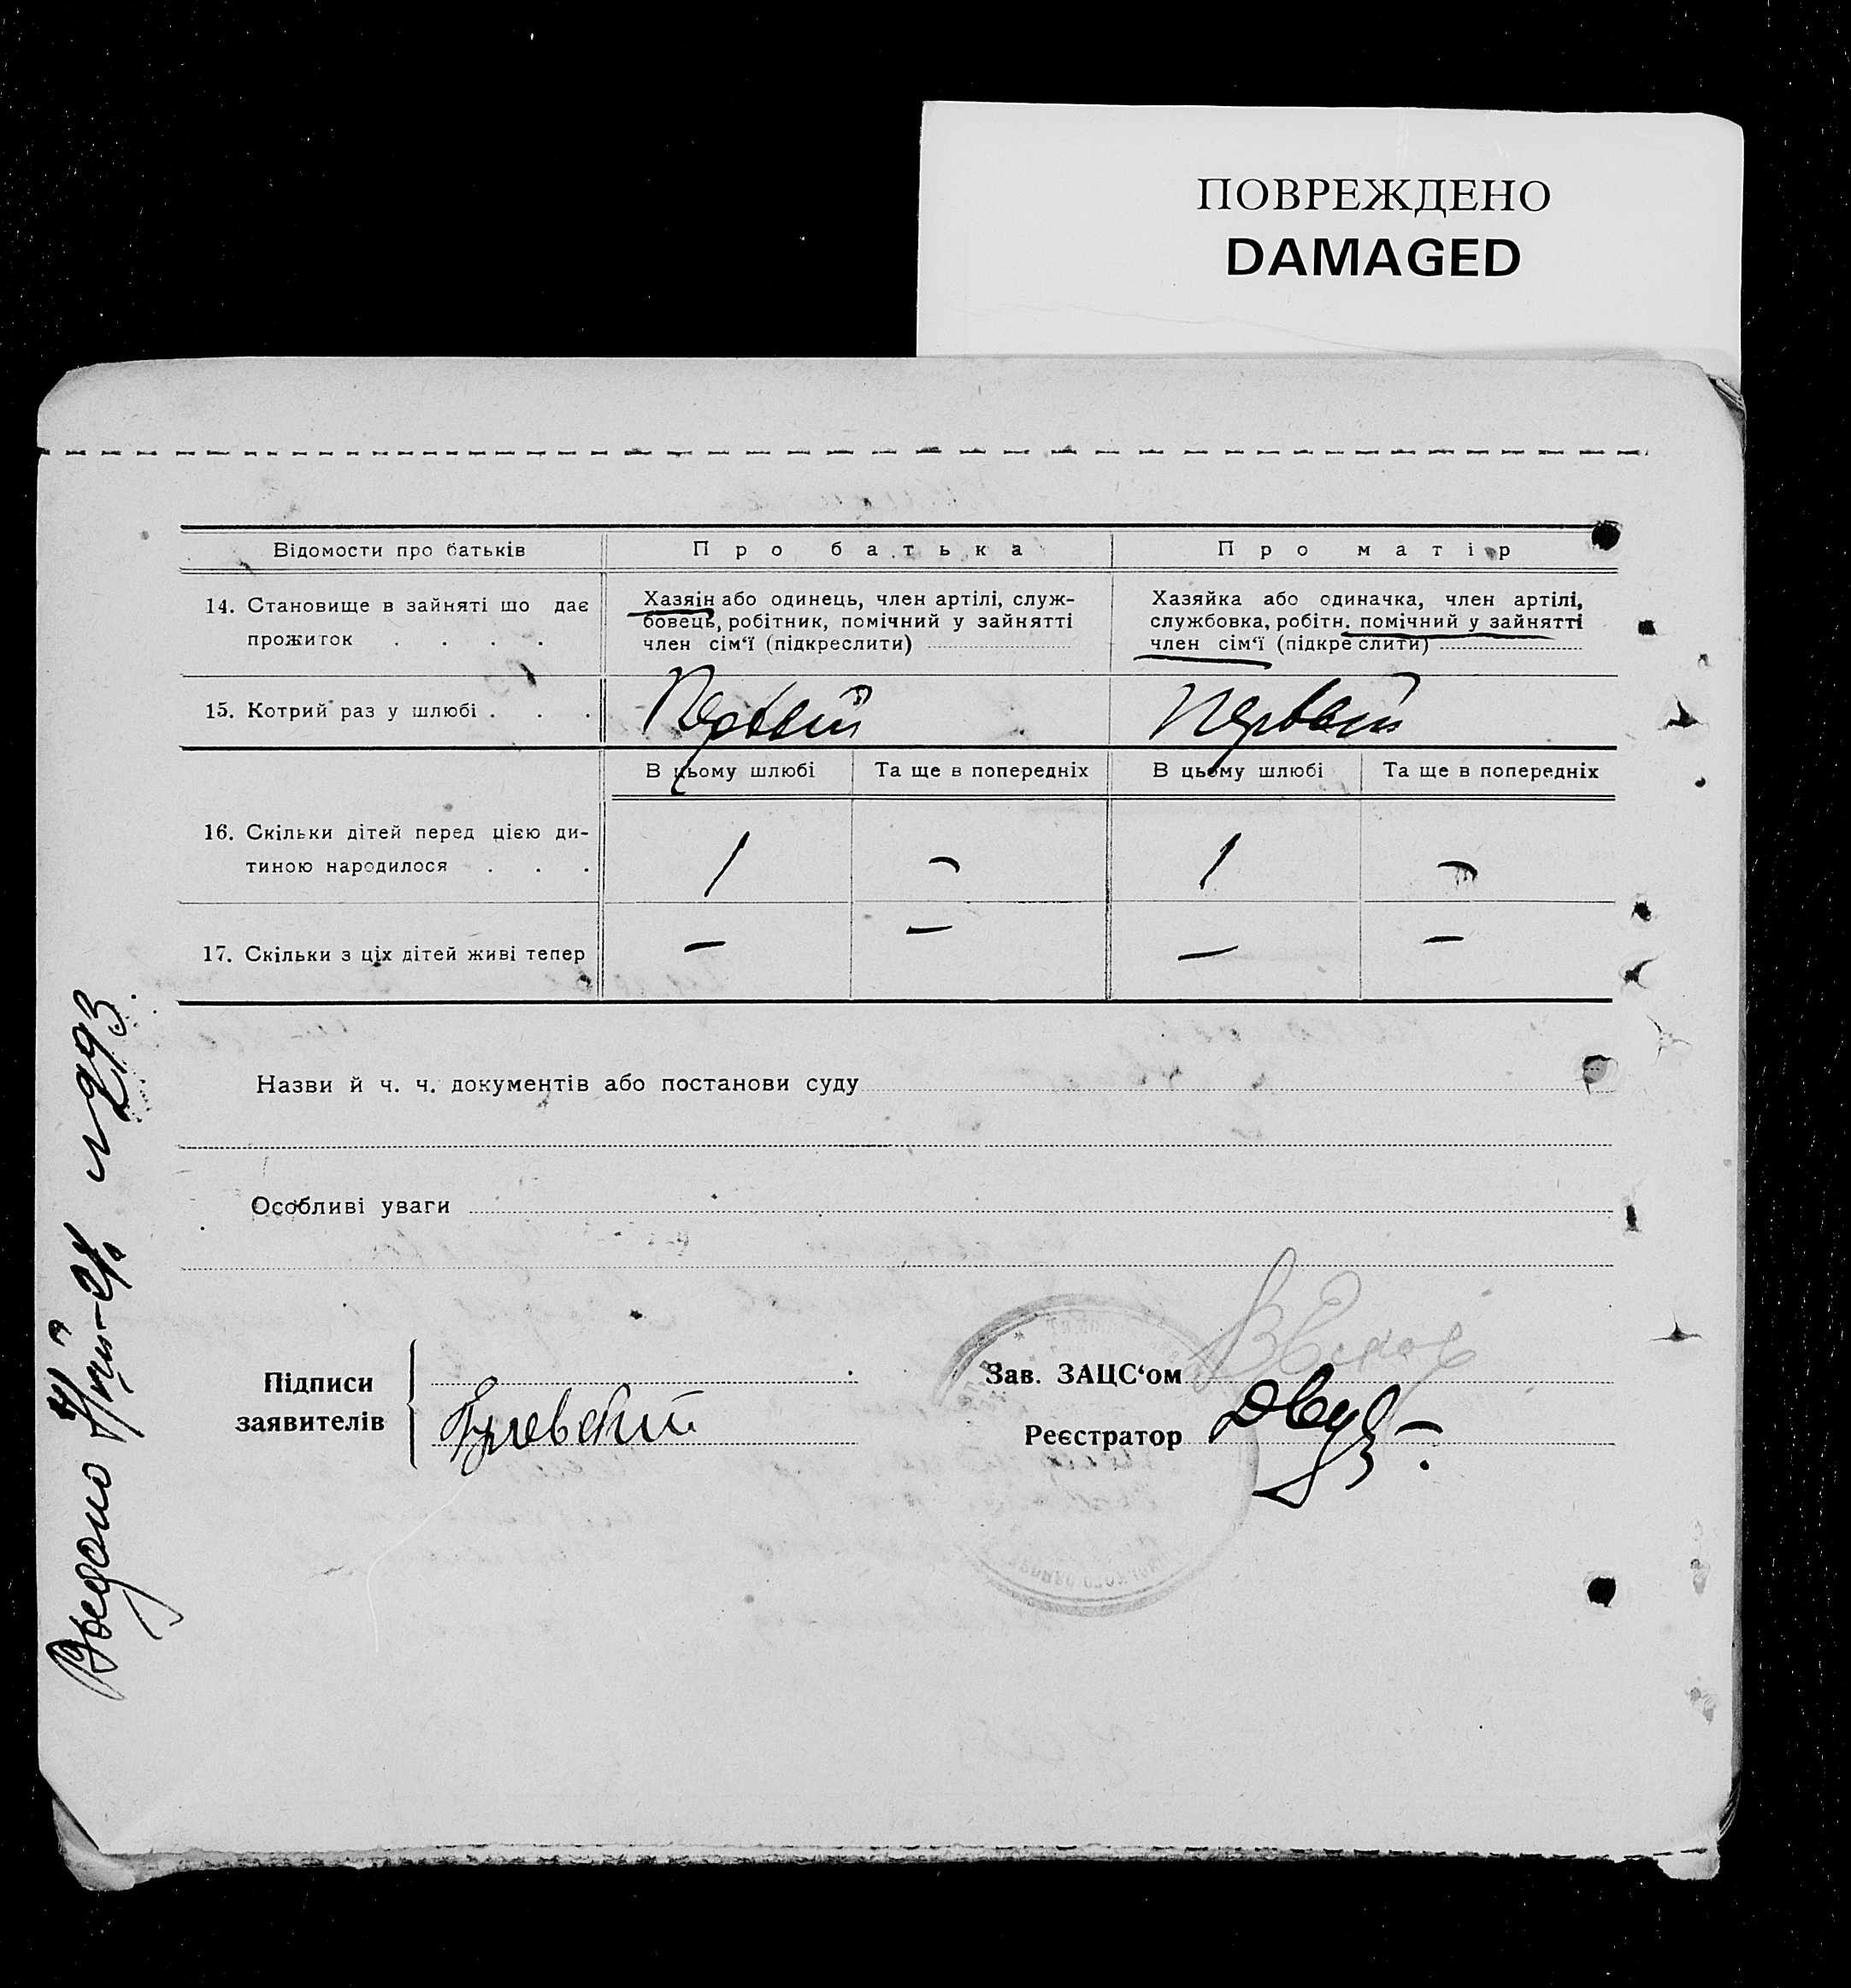 ПОВРЕЖДЕНО
DAMAGED
Відомости про батьків
Про батька
Про матір
14. Становище в зайняті що дає
прожиток . . . .
Хазяін або одинець, член артілі, служ-
бовець, робітник, помічний у зайнятті
член сім‘ї (підкреслити)
Хазяйка або одиначка, член артілі,
службовка, робітн. помічний у зайнятті
член сім‘ї (підкреслити)
15. Котрий раз у шлюбі . . .
Первый
Первый
В цьому шлюбі
Та ще в попередніх
В цьому шлюбі
Та ще в попередніх
16. Скільки дітей перед цією ди-
тиною народилося . . .
1
–
1
–
17. Скільки з ціх дітей живі тепер
–
–
–
–
Назви й ч. ч. документів або постанови суду
Особливі уваги
Підписи
заявителів
Зав. ЗАЦС‘ом
Реєстратор